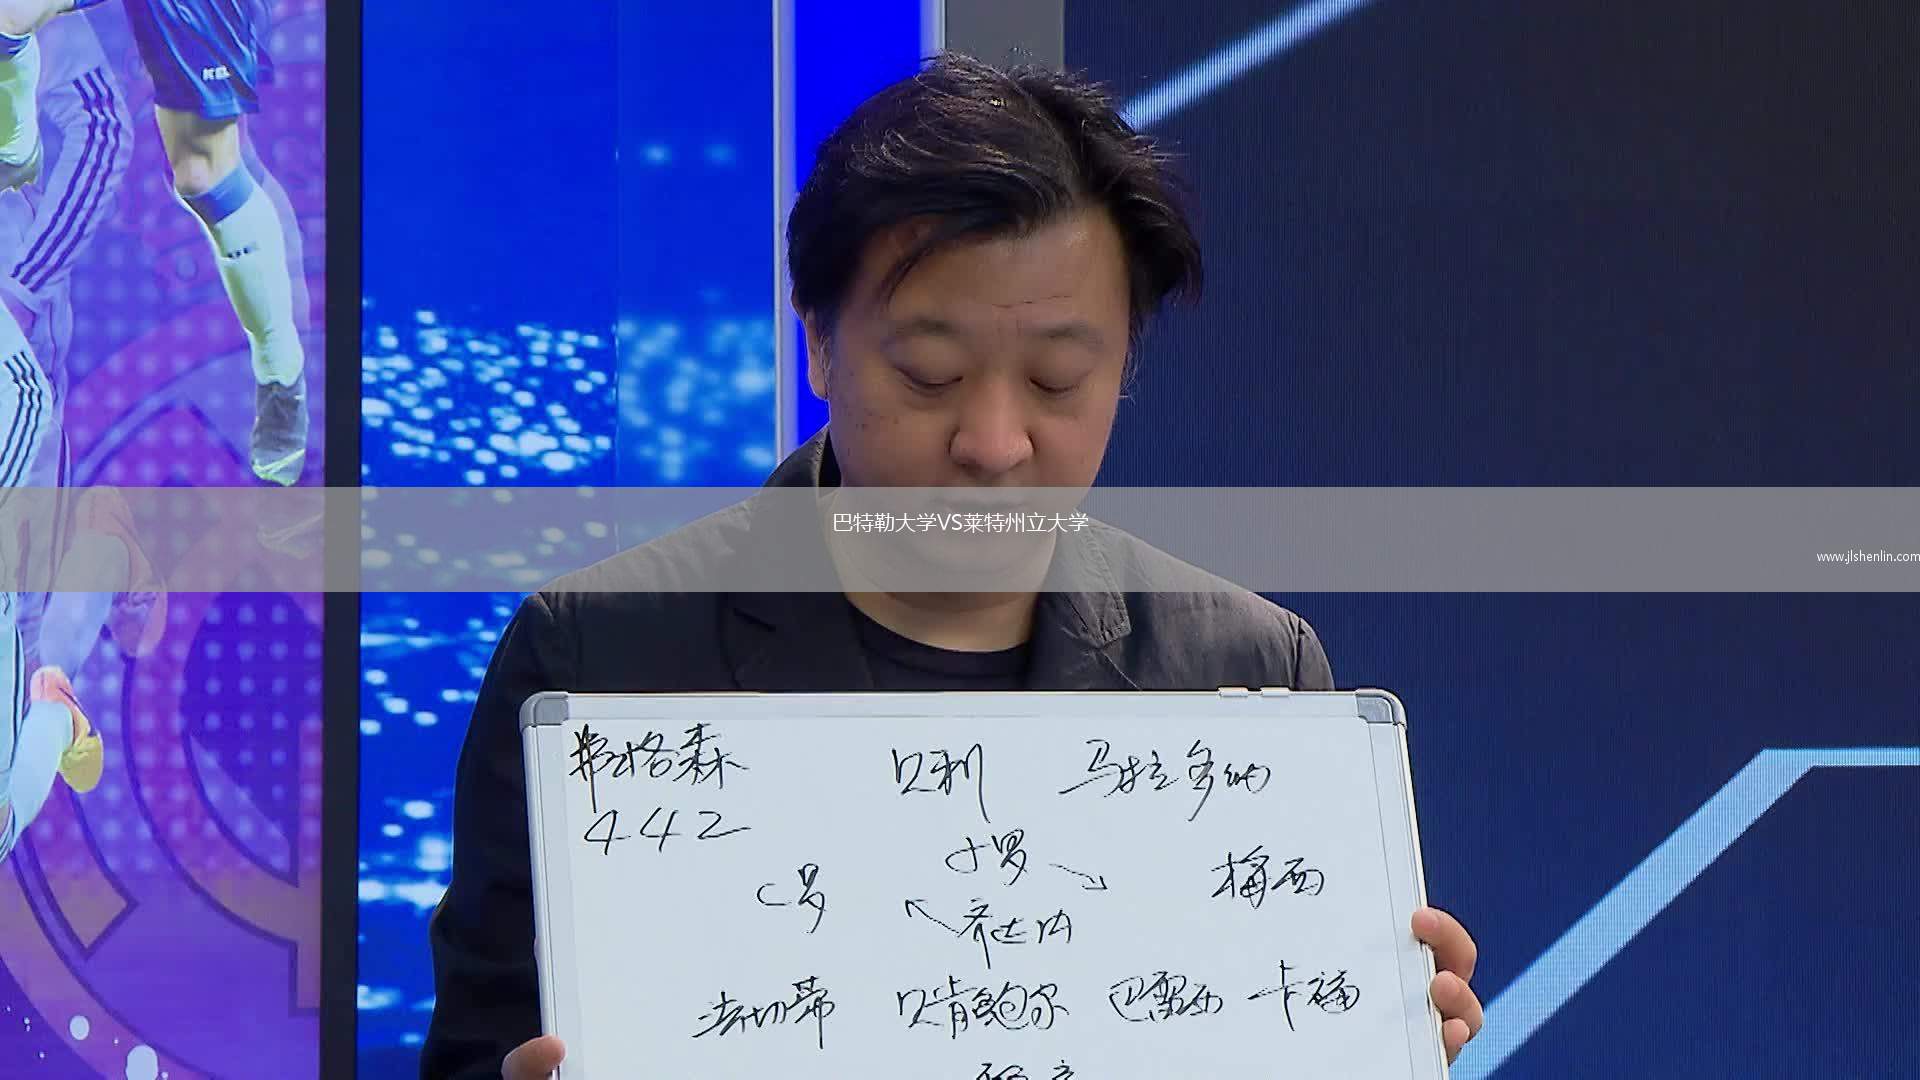 巴特勒大学VS莱特州立大学
www.jlshenlin.com
弗格森 贝利 马拉多纳
442
小罗
C罗 梅西
齐达内
法切蒂 贝肯鲍尔 巴雷西 卡福